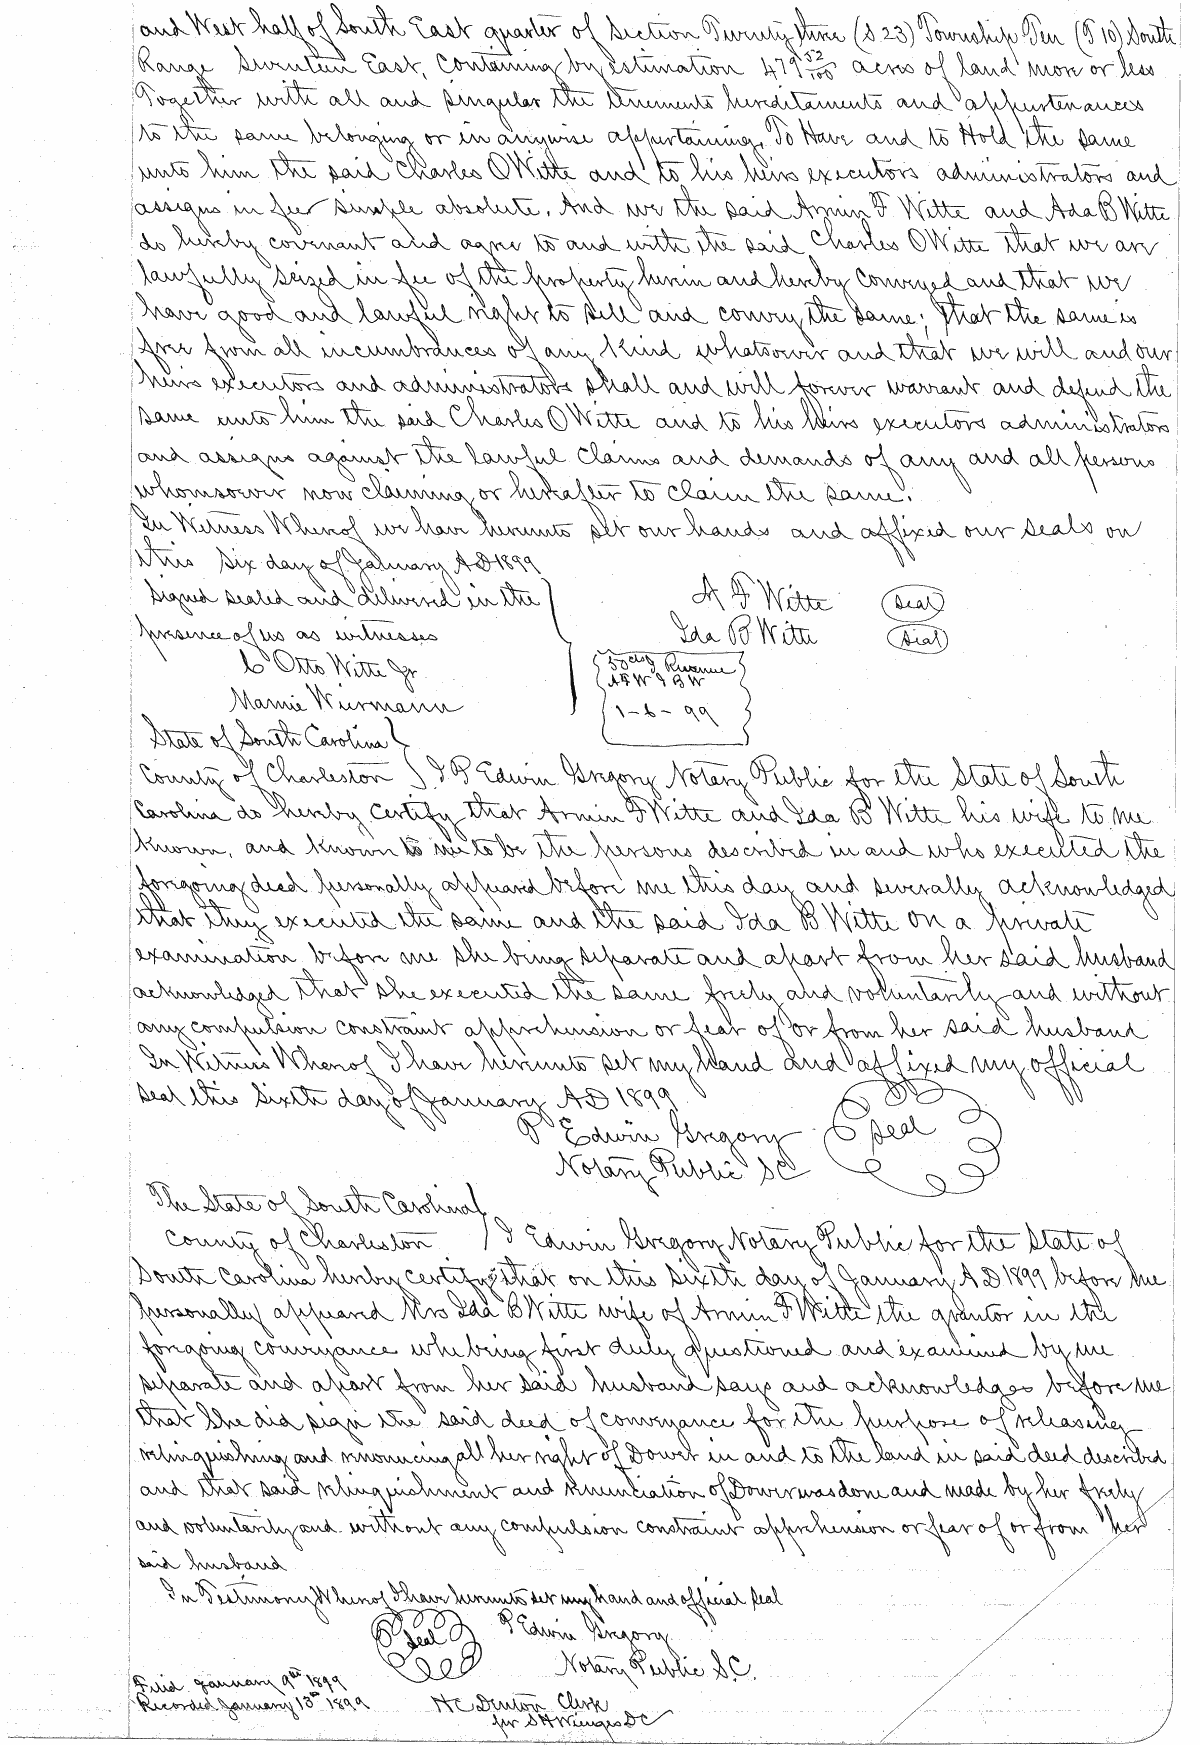 and West half of South East quarter of Section Twenty three (S 23) Township Ten (T 10) South
Range Seventeen East, Containing by estimation 479 52/100 acres of land more or less
Together with all and singular the tenements hereditaments and appurtenances
to the same belonging or in anywise appertaining, To Have and to Hold the same
unto him the said Charles O Witte and to his heirs executors administrators and
assigns in fee simple absolute. And we the said Armin F Witte and Ada B Witte
do hereby covenant and agree to and with the said Charles O Witte that we are
lawfully seized in fee of the property herein and hereby conveyed and that we
have good and lawful right to sell and convey the same; that the same is
free from all incumbrances of any kind whatsoever and that we will and our
heirs executors and administrators shall and will forever warrant and defend the
same unto him the said Charles O Witte and to his heirs executors administrators
and assigns against the lawful claims and demands of any and all persons
whomsoever now claiming or hereafter to claim the same.
In Witness Whereof we have hereunto set our hands and affixed our seals on
this six day of January AD 1899
Signed sealed and delivered in the
presence of us as witnesses
A F Witte Seal
Ida B Witte Seal
C Otto Witte Jr
Mamie Wiermann
50 ctsy Revenue
AFW I B W
1-6-99
State of South Carolina
County of Charleston } I P Edwin Gregory Notary Public for the State of South
Carolina do hereby certify that Armin F Witte and Ida B Witte his wife to me
known, and known to me to be the persons described in and who executed the
foregoing deed personally appeared before me this day and severally acknowledged
that they executed the same and the said Ida B Witte on a private
examination before me she being separate and apart from her said husband
acknowledged that she executed the same freely and voluntarily and without
any compulsion constraint apprehension or fear of or from her said husband
In Witness Whereof I have hereunto set my hand and affixed my official
seal this Sixth day of January AD 1899
P Edwin Gregory Seal
Notary Public SC
The State of South Carolina
County of Charleston } I Edwin Gregory Notary Public for the State of
South Carolina hereby certify that on this Sixth day of January AD 1899 before me
personally appeared Mrs Ida B Witte wife of Armin F Witte the grantor in the
foregoing conveyance who being first duly questioned and examined by me
separate and apart from her said husband says and acknowledges before me
that she did sign the said deed of conveyance for the purpose of releasing
relinquishing and renouncing all her right of Dower in and to the land in said deed described
and that said relinquishment and renunciation of Dower was done and made by her freely
and voluntarily and without any compulsion constraint apprehension or fear of or from her
said husband
In Testimony Whereof I have hereunto set my hand and official seal
Seal P Edwin Gregory
Notary Public S.C.
Filed January 9th 1899
Recorded January 13th 1899
H C Denton Clerk
per S H Wienges DC